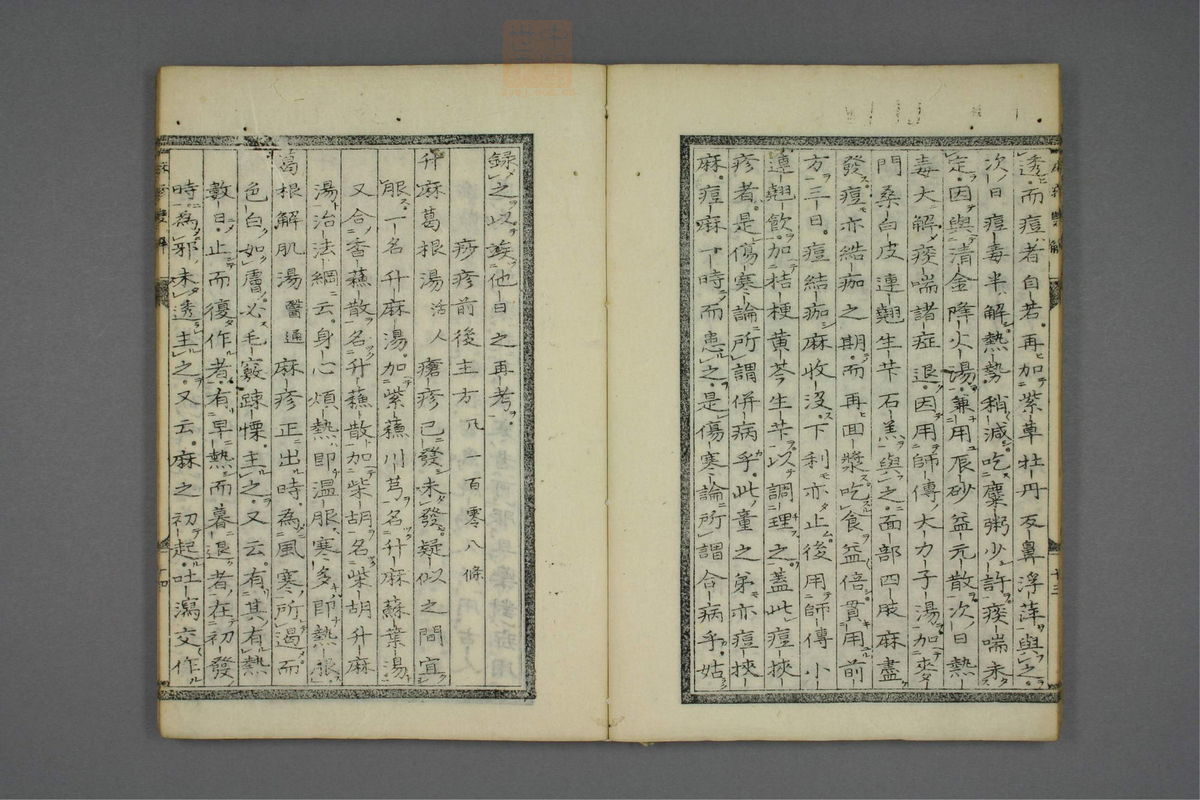 透而痘者自若再加紫草牡丹反鼻浮萍與之
次日痘毒半解熱勢稍減吃麋粥少許痰喘未
定因與清金降火湯兼用辰砂益元散次日熱
毒大解痰喘諸症退因用師傳大力子湯加麥
門桑白皮連翹生芐石羔與之面部四肢麻盡
發痘亦結痂之期而再回漿吃食益倍貫用前
方三日痘結痂麻收沒下利亦止後用師傳小
連翹飲加桔梗黄芩生芐以調理之蓋此痘挾
疹者是傷寒論所謂併病乎此童之弟亦痘挾
麻痘麻一時而患之是傷寒論所謂合病乎姑
十三
錄之以竢他日之再考
痧疹前後主方凡一百零八條
升麻葛根湯活人瘡疹已發未發疑似之間宜
服一名升麻湯加紫蘓川芎名升麻蘇葉湯
又合香蘓散名升蘓散加柴胡名柴胡升麻
湯治法綱云身心煩熱即温服寒多即熱服
葛根解肌湯醫通麻疹正出時為風寒所遏而
色白如膚必毛竅踈慄主之又云有其有熱
數日止而復作者有早熱而暮退者在初發
時為邪未透主之又云麻之初起吐瀉交作
十四